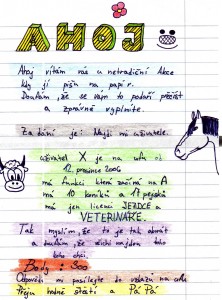 AHOJ
Ahoj vítám vás u netradiční Akce
kdy já píšu na papír.
Doufám, že se vám to podaří přečíst
a správně vyplníte.
Zadání je: Najdi mi uživatele.
uživatel X je na wh od
12. prosince 2006
má funkci která začíná na A
má 10 koníků a 1 pejska
má jen licenci JEZDCE a
VETERINÁŘE.
Tak myslím že to je tak akorát
a doufám, že
toho chci.
Body: 500
Odpovědi mi posílejte do vzkazů na wh
Přeju hodně štěstí a Pá Pá